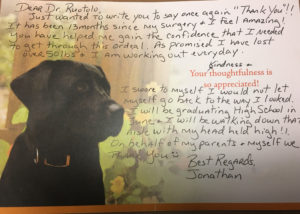 Dear Dr. Ruotolo,
Just wanted to write you to say once again, "Thank you"!!
It has been 13 months since my surgery & I feel Amazing!
You have helped me gain the confidence that I needed
to get through this ordeal. As promised I have lost
over 50 lbs & I am working out everyday.
Kindness &
Your thoughtfulness is
so appreciated!
I swore to myself I would not let
myself go back to the way I looked.
I will be graduating High School in
June & I will be walking down that
aisle with my head held high!!
On behalf of my parents & myself we
Thank you
Best Regards,
Jonathan